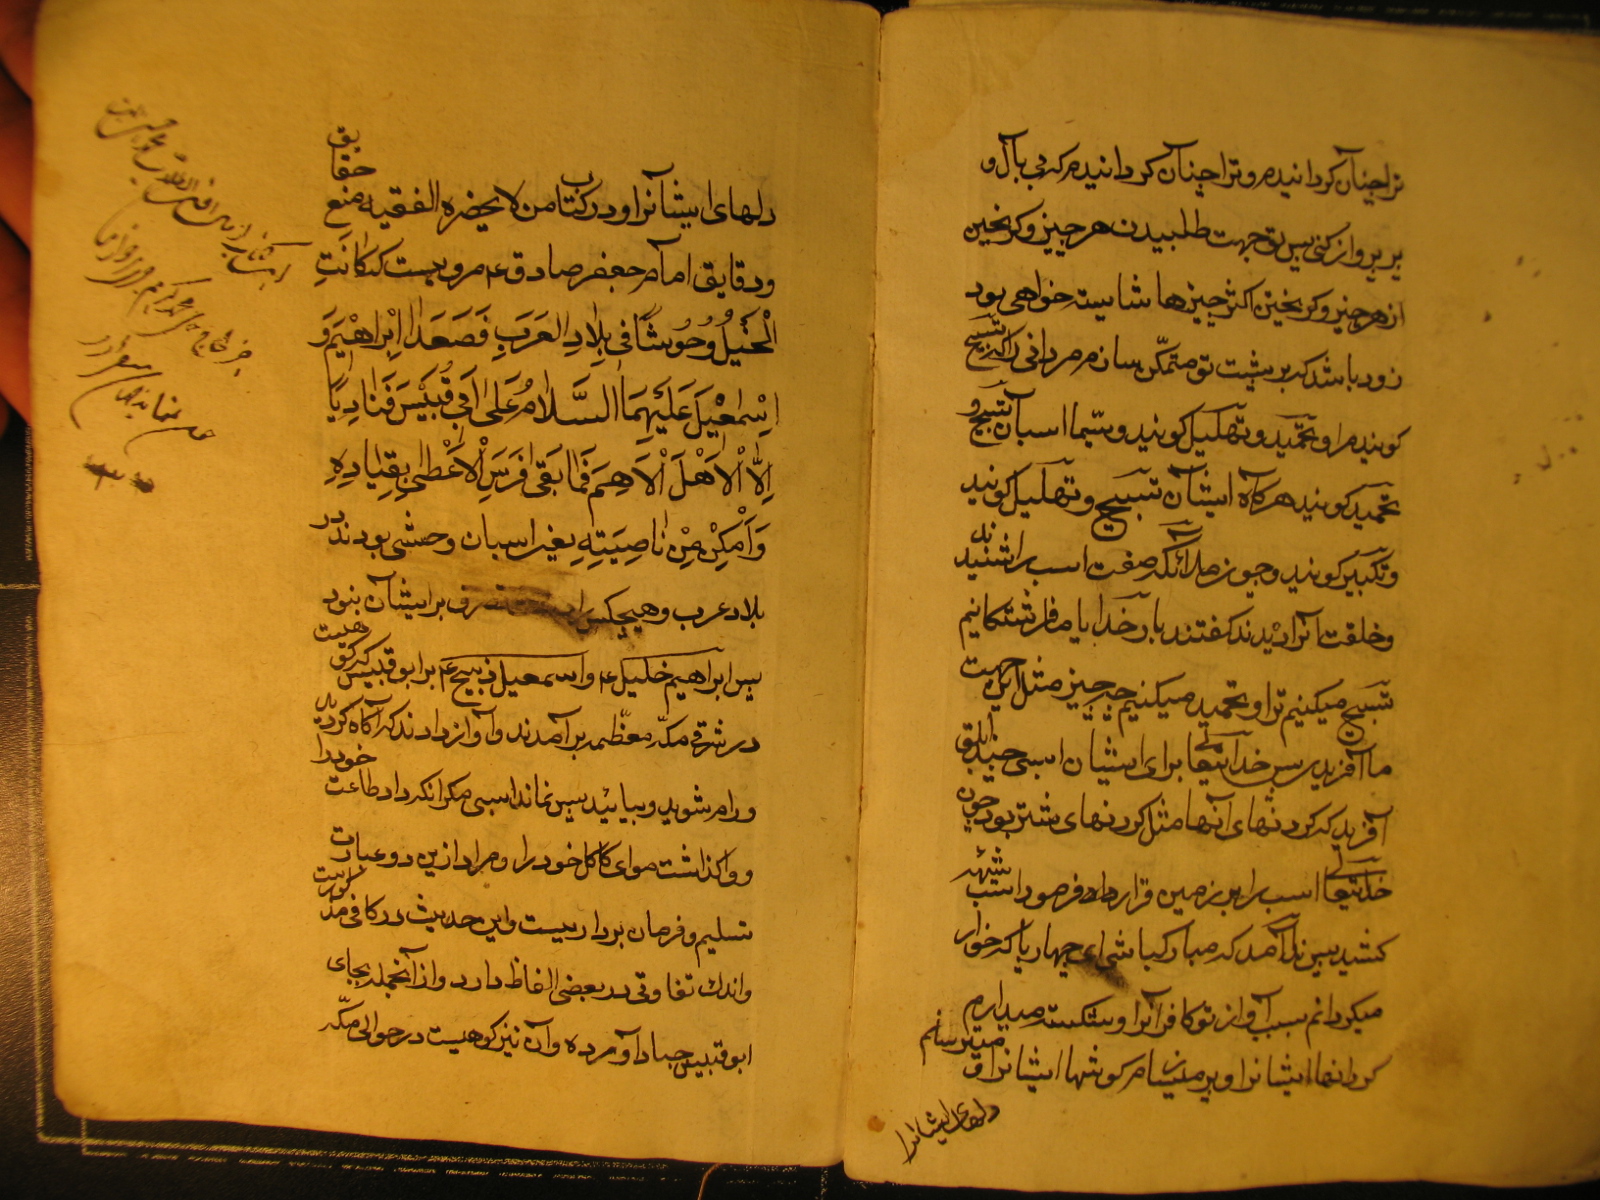 ترا چنان گردانیدم و ترا چنان گردانیدم که بی بال و
پر پرواز کنی پس تو جهت طلبیدن هر چیز و گریختن
از هر چیز و گریختن اکثر چیزها شایسته خواهی بود
زود باشد که بر پشت تو متمکن سازم مردانی را که تسبیح
گویند مرا و تحمید و تهلیل گویند و شما اسبان تسبیح و
تحمید گویید هرگاه ایشان تسبیح و تهلیل گویند
و تکبیر گویند و چون ملائکه صفت اسب را شنیدند
و خلقت آنرا دیدند گفتند بار خدایا ما فرشتگانیم
تسبیح میکنیم ترا و تحمید میکنیم چه چیز مثل این جهت
ما آفریدی پس خدایتعالی برای ایشان اسبی چند ابلق
آفرید که گردنهای آنها مثل گردنهای شتر بود چون
خدایتعالی اسب را بر زمین قرار داد فرمود اسب شیهه
کشید پس ندا آمد که مبارک باشی ای چهارپا که خوار
میگردانم بسبب آواز تو کافرانرا و شکسته میدارم
گردنها ایشانرا و پر میسازم گوشها ایشانرا و میترسانم
دلهای ایشانرا
دلهای ایشانرا و در کتاب من لا یحضره الفقیه منبع حقایق
و دقایق امام جعفر صادق ع مرویست که کانت
الْخَیْلُ وُحُوشًا فی بِلادِ العَرَبِ فَصَعَدَ اِبْراهیمَ وَ
اِسْمعیلَ عَلَیْهِمَا السَّلامُ عَلی اَبی قُبَیْسٍ فَنادِیًا
اِلّا اْلاَهَلَ اْلاَهلمَ فَمابَقیَ فَرَسٌ اِلاّ اَعْطی بِقِیادِهِ
وَ اَمْکِنْ مِنْ ناصِیَتِهِ یعنی اسبان وحشی بودند در
بلاد عرب و هیچکس را تصرف بر ایشان نبود
پس ابراهیم خلیل ع و اسمعیل ذبیح ع بر ابو قبیس که کوهیست
در شرقی مکه معظمه برآمدند و آواز دادند که آگاه گردید
و رام شوید و بیایید پس نماند اسبی مگر آنکه داد طاعت خود را
و واگذاشت موی کاکل خود را و مراد ازین دو عبارت
تسلیم و فرمان برداریست و این حدیث در کافی مذکور است
و اندک تفاوتی در بعضی الفاظ دارد و از آنجمله بجای
ابو قبیس جیاد آورده و آن نیز کوهیست در حوالی مکه